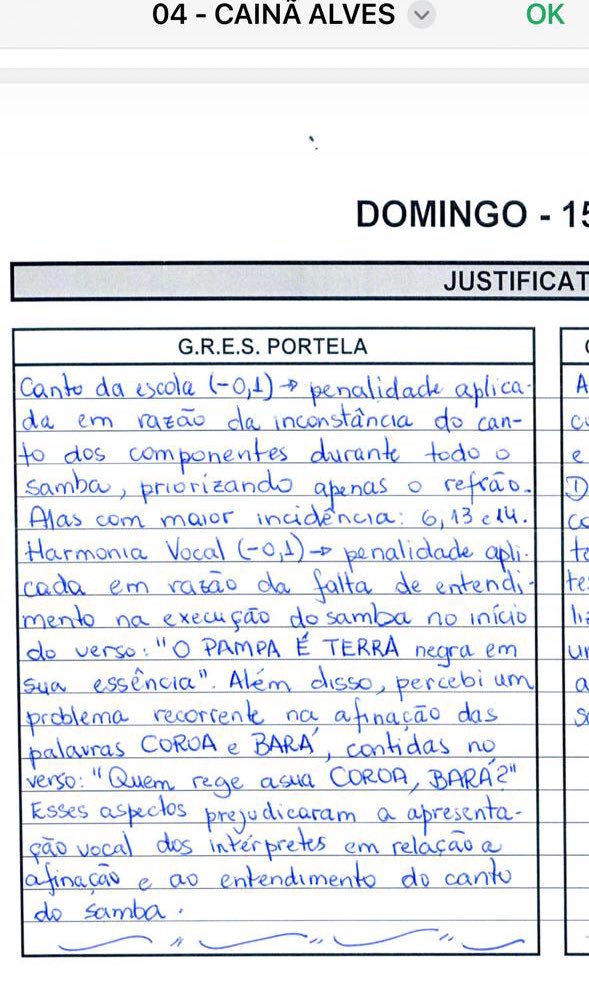 04 - CAINÃ ALVES
OK
DOMINGO - 15
JUSTIFICAT
G.R.E.S. PORTELA
Canto da escola (-0,1) → penalidade aplica-
da em razão da inconstância do can-
to dos componentes durante todo o
samba, priorizando apenas o refrão.
Alas com maior incidência: 6, 13 e 14.
Harmonia Vocal (-0,1) → penalidade apli-
cada em razão da falta de entendi-
mento na execução do samba no início
do verso: "O PAMPA É TERRA negra em
sua essência". Além disso, percebi um
problema recorrente na afinação das
palavras COROA e BARÁ, contidas no
verso: "Quem rege a sua COROA, BARÁ?"
Esses aspectos prejudicaram a apresenta-
ção vocal dos intérpretes em relação a
afinação e ao entendimento do canto
do samba.